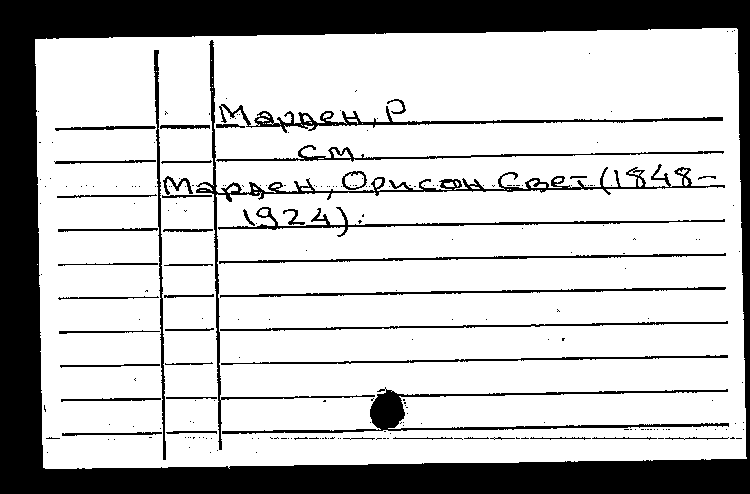 Марден, Р
см.
Марден, Орисон Свет (1848-
1924).